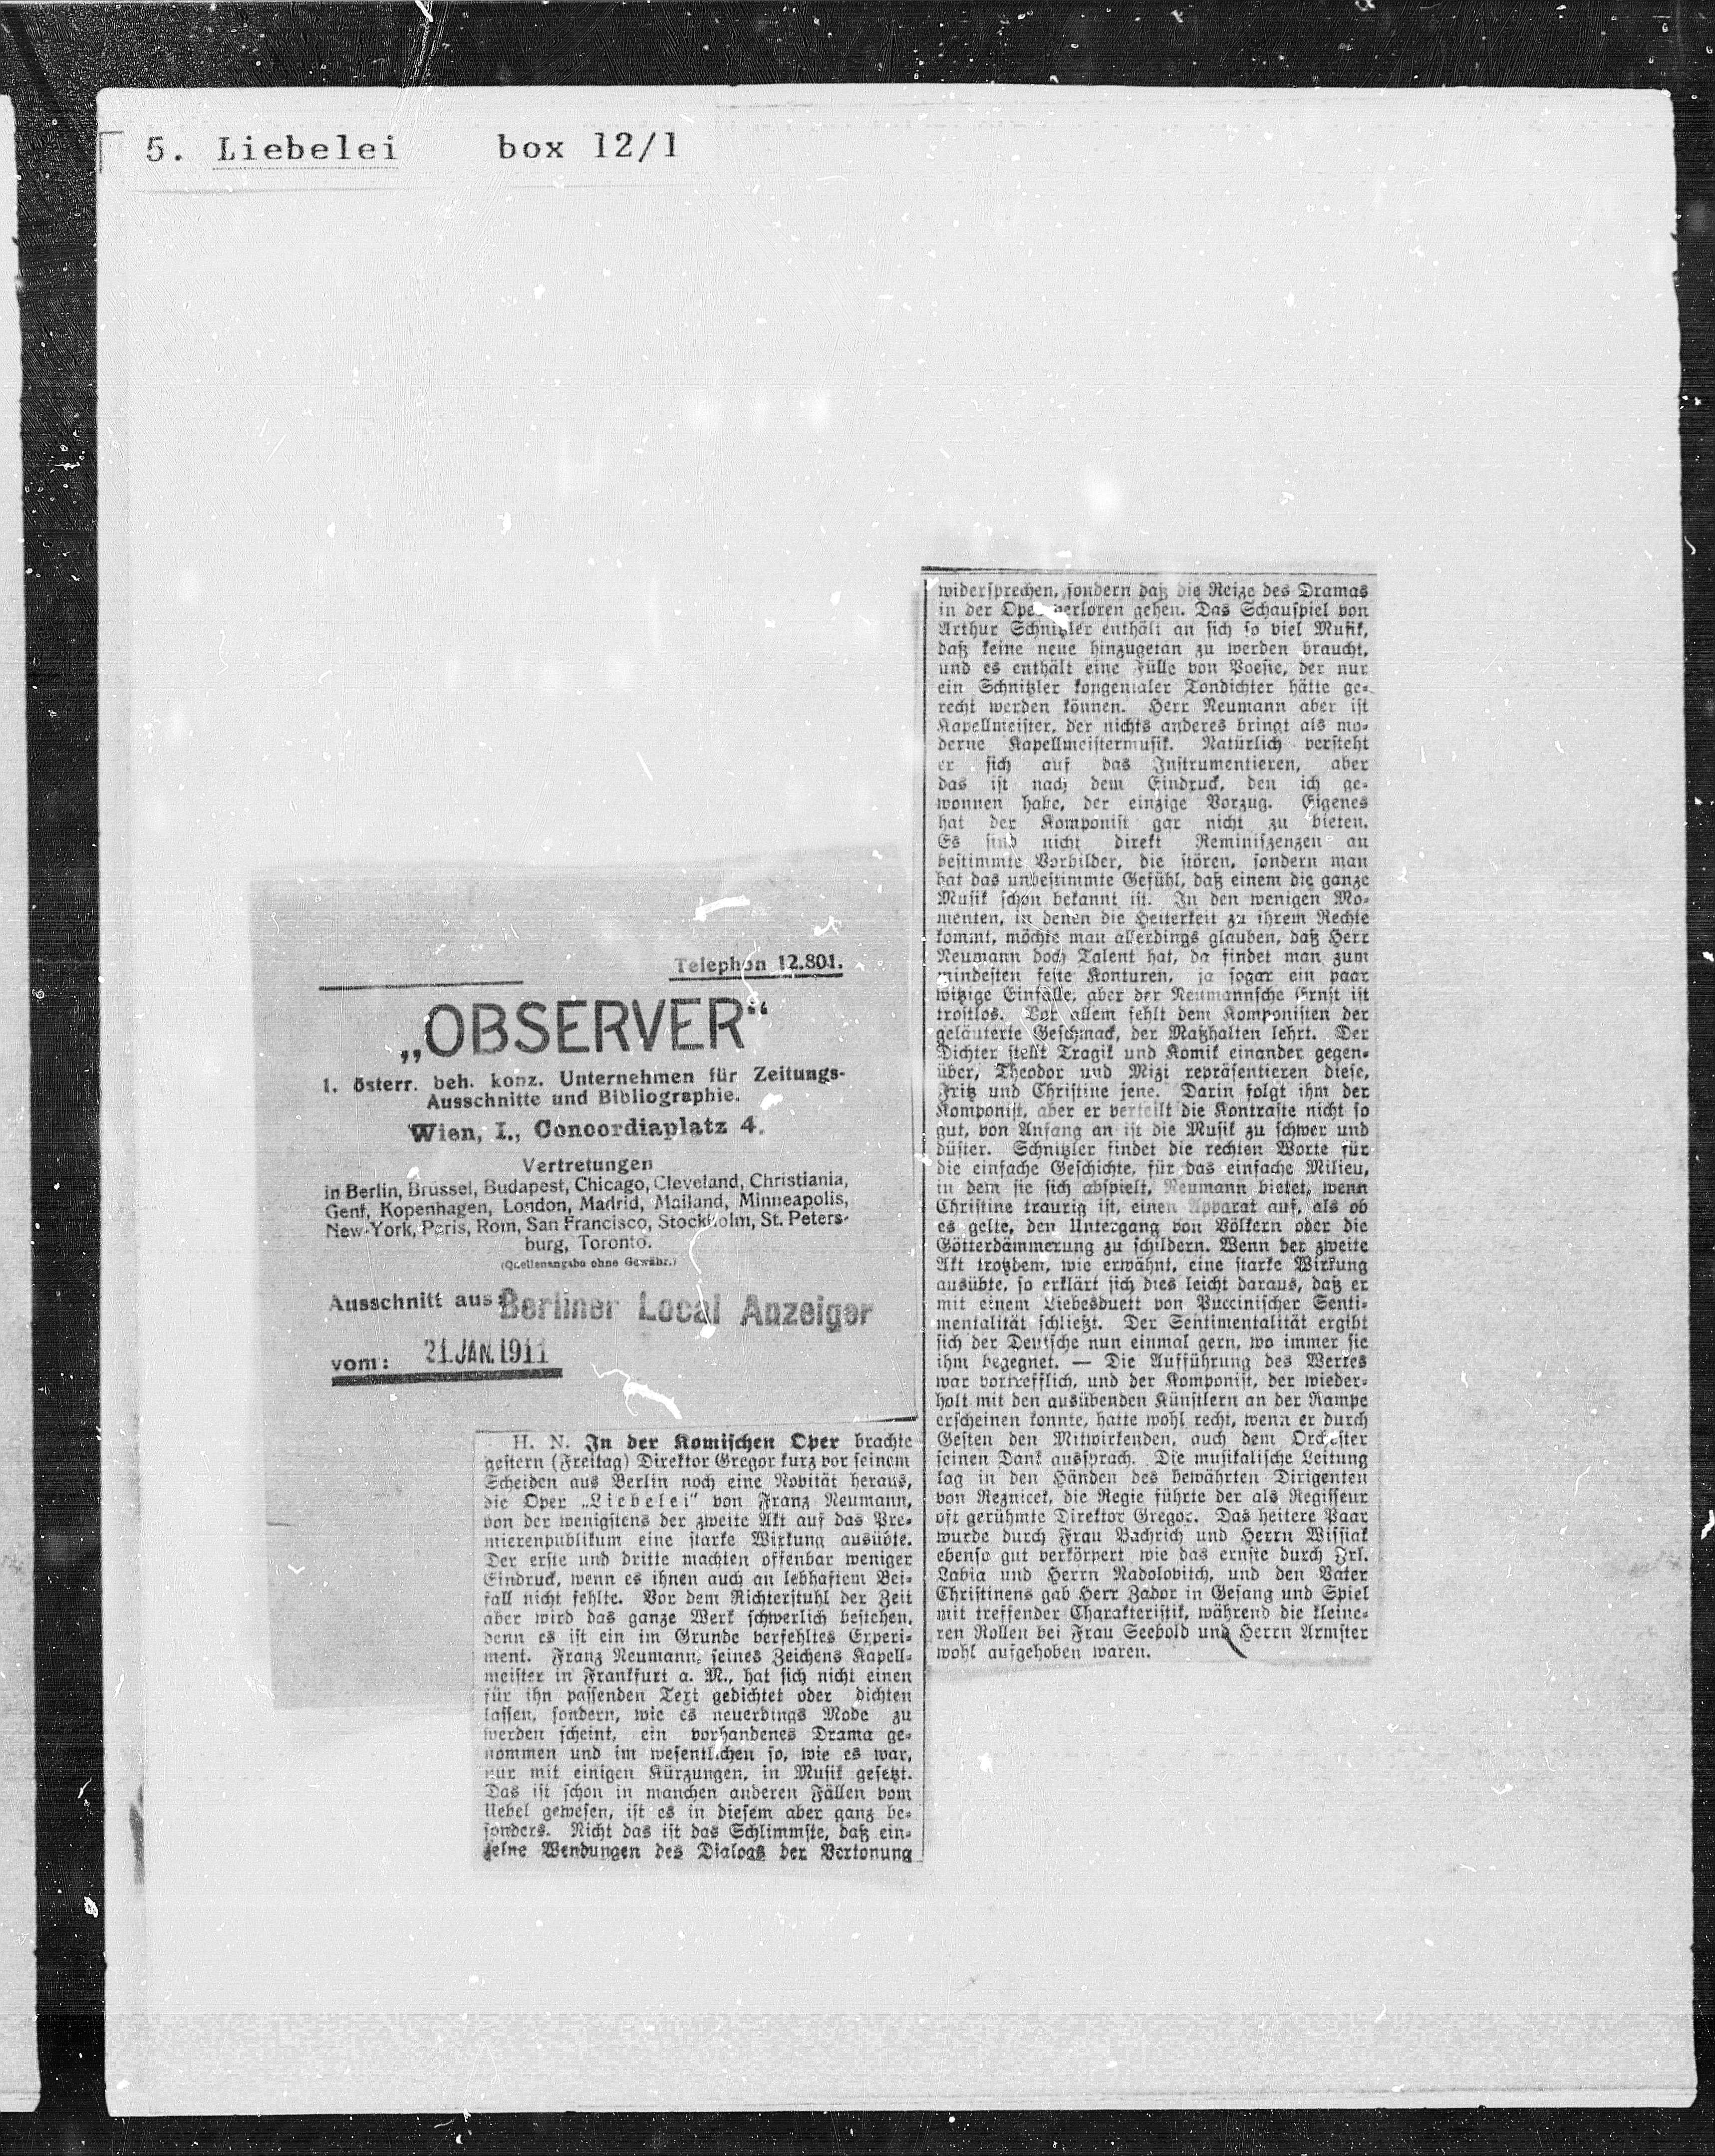 5. Liebelei box 12/1
Telephon 12.801.
„OBSERVER“
I. österr. beh. konz. Unternehmen für Zeitungs-
Ausschnitte und Bibliographie.
Wien, I., Concordiaplatz 4.
Vertretungen
in Berlin, Brüssel, Budapest, Chicago, Cleveland, Christiania,
Genf, Kopenhagen, London, Madrid, Mailand, Minneapolis,
New-York, Paris, Rom, San Francisco, Stockholm, St. Peters-
burg, Toronto.
(Quellenangabe ohne Gewähr.)
Ausschnitt aus: Berliner Local Anzeiger
vom: 21. JAN. 1911
H. N. In der Komischen Oper brachte
gestern (Freitag) Direktor Gregor kurz vor seinem
Scheiden aus Berlin noch eine Novität heraus,
die Oper „Liebelei“ von Franz Neumann,
von der wenigstens der zweite Akt auf das Pre-
mierenpublikum eine starke Wirkung ausübte.
Der erste und dritte machten offenbar weniger
Eindruck, wenn es ihnen auch an lebhaftem Bei-
fall nicht fehlte. Vor dem Richterstuhl der Zeit
aber wird das ganze Werk schwerlich bestehen,
denn es ist ein im Grunde verfehltes Experi-
ment. Franz Neumann, seines Zeichens Kapell-
meister in Frankfurt a. M., hat sich nicht einen
für ihn passenden Text gedichtet oder dichten
lassen, sondern, wie es neuerdings Mode zu
werden scheint, ein vorhandenes Drama ge-
nommen und im wesentlichen so, wie es war,
nur mit einigen Kürzungen, in Musik gesetzt.
Das ist schon in manchen anderen Fällen vom
Uebel gewesen, ist es in diesem aber ganz be-
sonders. Nicht das ist das Schlimmste, daß ein-
zelne Wendungen des Dialogs der Vertonung
widersprechen, sondern daß die Reize des Dramas
in der Oper verloren gehen. Das Schauspiel von
Arthur Schnitzler enthält an sich so viel Musik,
daß keine neue hinzugetan zu werden braucht,
und es enthält eine Fülle von Poesie, der nur
ein Schnitzler kongenialer Tondichter hätte ge-
recht werden können. Herr Neumann aber ist
Kapellmeister, der nichts anderes bringt als mo-
derne Kapellmeistermusik. Natürlich versteht
er sich auf das Instrumentieren, aber
das ist nach dem Eindruck, den ich ge-
wonnen habe, der einzige Vorzug. Eigenes
hat der Komponist gar nicht zu bieten.
Es sind nicht direkt Reminiszenzen an
bestimmte Vorbilder, die stören, sondern man
hat das unbestimmte Gefühl, daß einem die ganze
Musik schon bekannt ist. In den wenigen Mo-
menten, in denen die Heiterkeit zu ihrem Rechte
kommt, möchte man allerdings glauben, daß Herr
Neumann doch Talent hat, da findet man zum
mindesten feste Konturen, ja sogar ein paar
witzige Einfälle, aber der Neumannsche Ernst ist
trostlos. Vor allem fehlt dem Komponisten der
geläuterte Geschmack, der Maßhalten lehrt. Der
Dichter stellt Tragik und Komik einander gegen-
über, Theodor und Mizi repräsentieren diese,
Fritz und Christine jene. Darin folgt ihm der
Komponist, aber er verteilt die Kontraste nicht so
gut, von Anfang an ist die Musik zu schwer und
düster. Schnitzler findet die rechten Worte für
die einfache Geschichte, für das einfache Milieu,
in dem sie sich abspielt, Neumann bietet, wenn
Christine traurig ist, einen Apparat auf, als ob
es gelte, den Untergang von Völkern oder die
Götterdämmerung zu schildern. Wenn der zweite
Akt trotzdem, wie erwähnt, eine starke Wirkung
ausübte, so erklärt sich dies leicht daraus, daß er
mit einem Liebesduett von Puccinischer Senti-
mentalität schließt. Der Sentimentalität ergibt
sich der Deutsche nun einmal gern, wo immer sie
ihm begegnet. — Die Aufführung des Werkes
war vortrefflich, und der Komponist, der wieder-
holt mit den ausübenden Künstlern an der Rampe
erscheinen konnte, hatte wohl recht, wenn er durch
Gesten den Mitwirkenden, auch dem Orchester
seinen Dank aussprach. Die musikalische Leitung
lag in den Händen des bewährten Dirigenten
von Reznicek, die Regie führte der als Regisseur
oft gerühmte Direktor Gregor. Das heitere Paar
wurde durch Frau Bachrich und Herrn Wissiak
ebenso gut verkörpert wie das ernste durch Frl.
Labia und Herrn Nadolovitch, und den Vater
Christinens gab Herr Zador in Gesang und Spiel
mit treffender Charakteristik, während die kleine-
ren Rollen bei Frau Seebold und Herrn Armster
wohl aufgehoben waren.